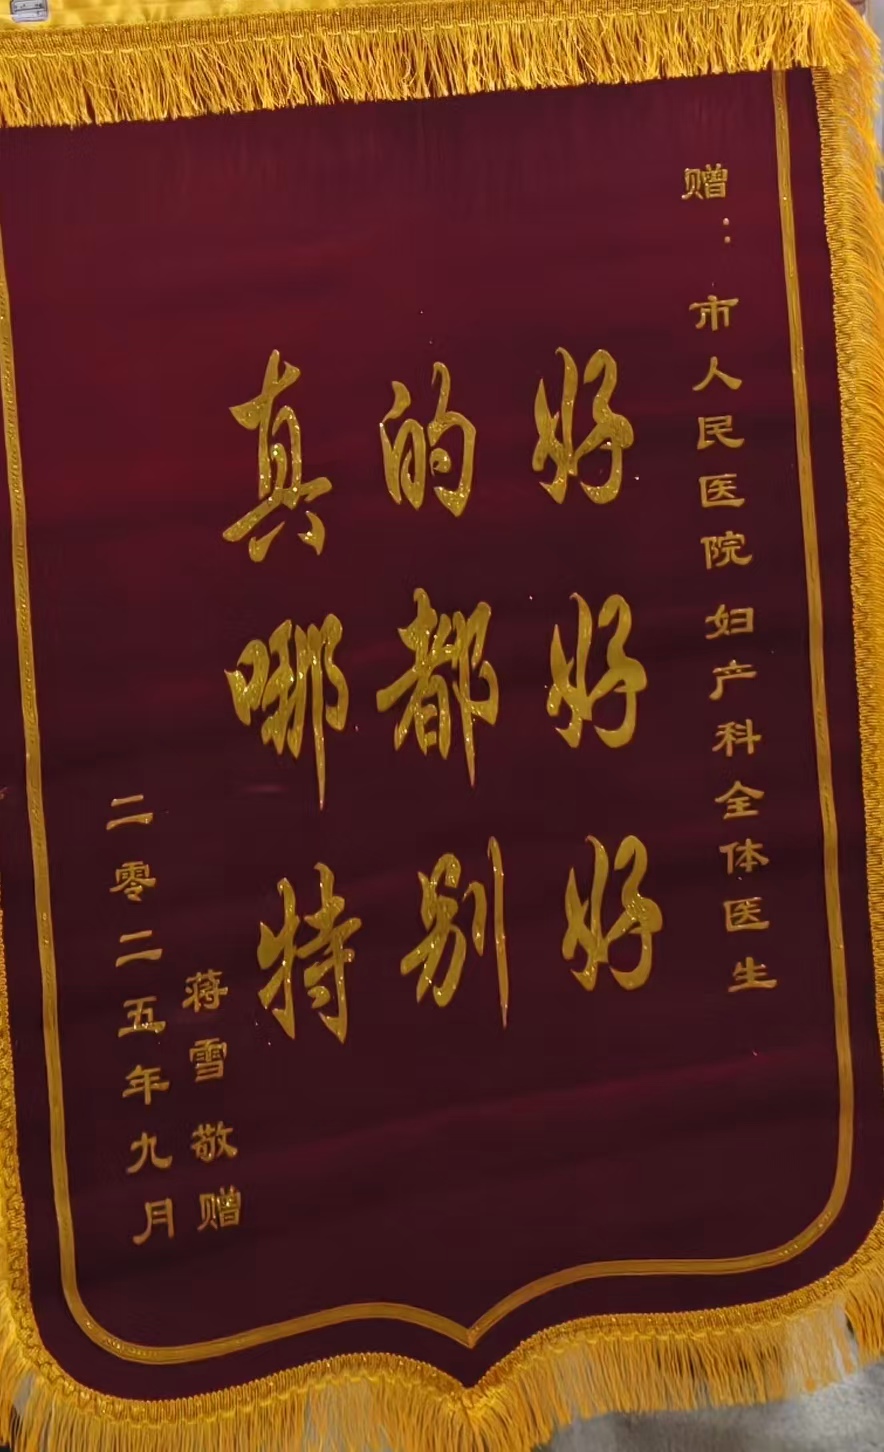 赠：市人民医院妇产科全体医生
真的好
哪都好
特别好
蒋雪 敬赠
二零二五年九月